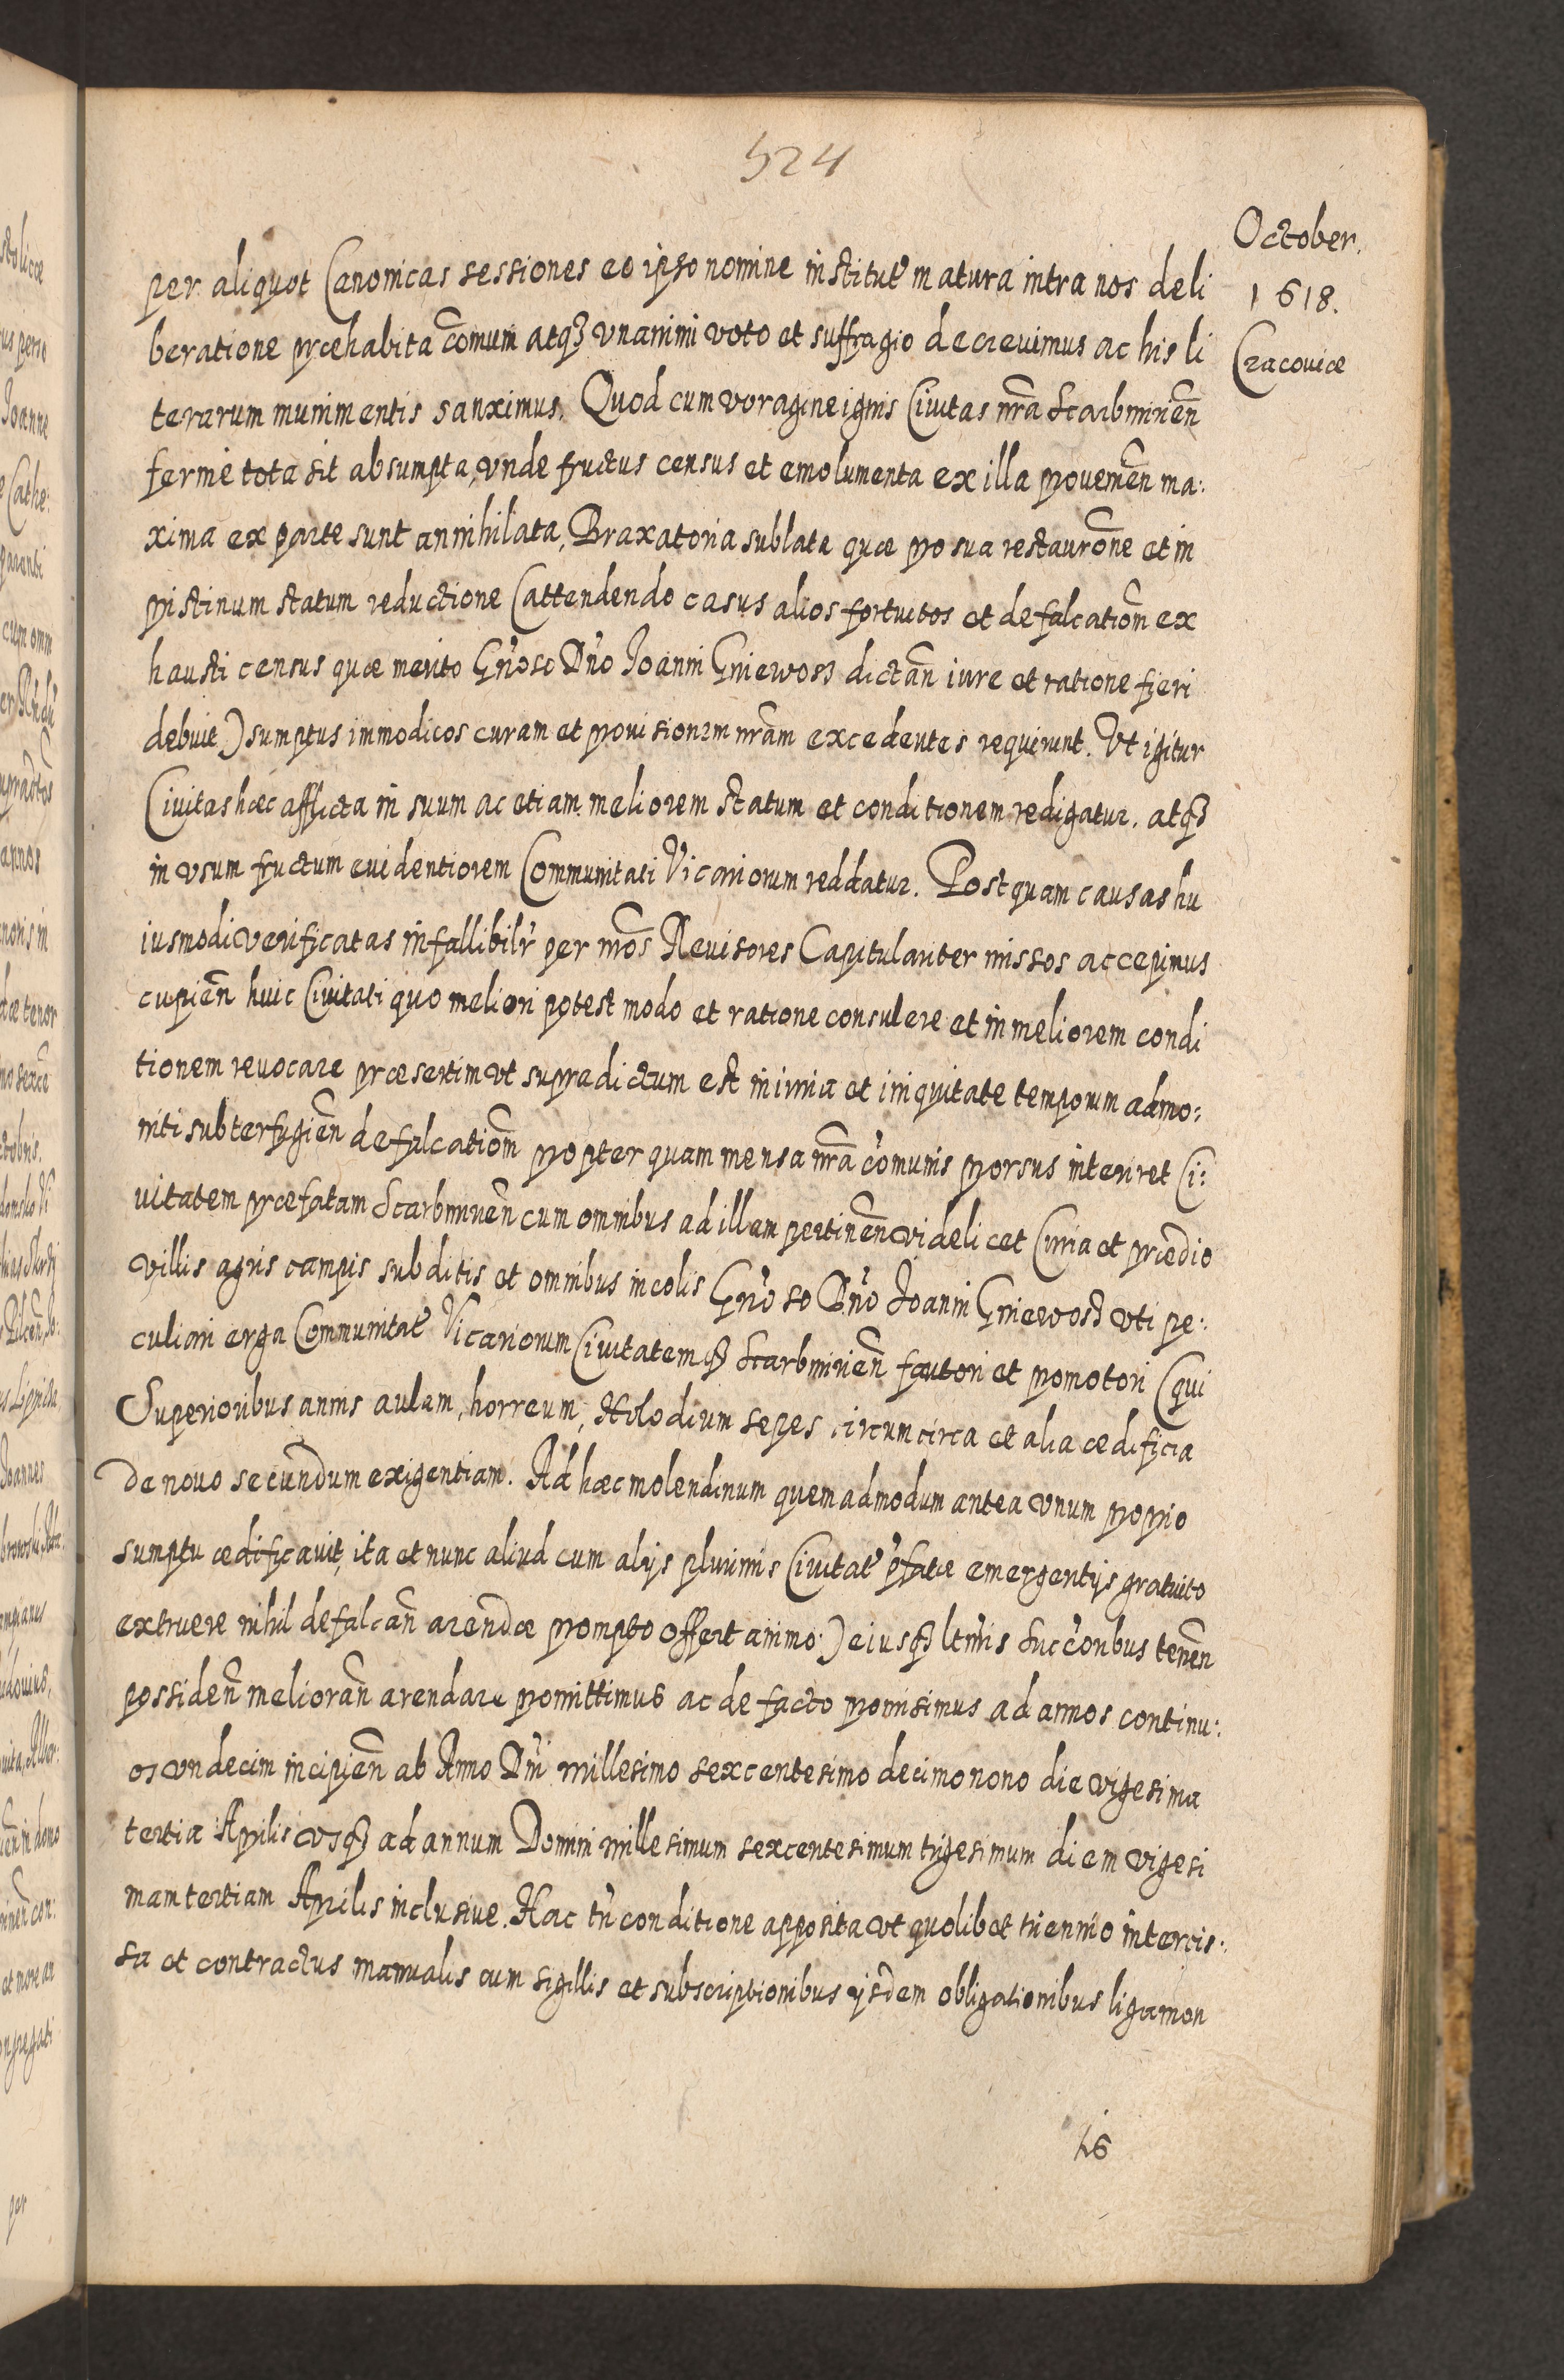 524
October.
1618.
Cracouiæ
per aliquot Canonicas sessiones eo ipso nomine institut' matura intra nos deli
beratione præhabita com̃uni atq₃ vnanimi voto et suffragio decreuimus ac his li
terarum munimentis sanximus. Quod cum voragine ignis Ciuitas nr̃a Scarbmireñ
ferme tota sit absumpta, vnde fructus census et emolumenta ex illa proueneñ ma:
xima ex parte sunt annihilata, Braxatoria sublata quæ pro sua restaurõne et in
pristinum statum reductione (attendendo casus alios fortuitos et defalcatiom̃ ex
hausti census quæ merito Gn̉oso Dn̉o Joanni Gniewosz dictañ iure et ratione fieri
debuit) sumptus immodicos curam et prouisionem nr̃am excedentes requirunt. Vt igitur
Ciuitas hæc afflicta in suum ac etiam meliorem statum et conditionem redigatur. atq₃
in vsum fructum euidentiorem Communitati Vicariorum reddatur. Postquam causas hu
iusmodi verificatas infallibilr̉ per nr̃os Reuisores Capitulariter missos accepimus
cupieñ huic Ciuitati quo meliori potest modo et ratione consulere et in meliorem condi
tionem reuocare præsertim vt supradictum est iniuria et iniquitate temporum admo:
niti subterfugieñ defalcatiom̃ propter quam mensa nr̃a co᷑munis prorsus interiret Ci:
uitatem præfatam Scarbmireñ cum omnibus ad illam pertineñ videlicet Curia et prædio
villis agris campis subditis et omnibus incolis Gn̉oso Dn̉o Joanni Gniewosz vti pe:
culiari erga Communitat' Vicariorum Ciuitatemq₃ Scarbmirieñ fautori et promotori (qui
Superioribus annis aulam, horreum, Allodium sepes circumcirca et alia ædificia
de nouo secundum exigentiam. Ad hæc molendinum quemadmodum antea vnum proprio
sumptu ædificauit, ita et nunc aliud cum alijs plurimis Ciuitat' p̉fatæ emergentijs gratuito
extruere nihil defalcañ arendæ prompto offert animo:) eiusq₃ ltm̉is Succ'oribus teneñ
possideñ meliorañ arendare promittimus ac de facto promisimus ad annos continu:
os vndecim incipieñ ab Anno Dn̉i millesimo sexcentesimo decimonono die vigesima
tertia Aprilis vsq₃ ad annum Domini millesimum sexcentesimum trigesimum diem vigesi
mam tertiam Aprilis inclusiue. Hac tn̉ conditione apposita vt quolibet triennio intercis:
sa et contractus manualis cum sigillis et subscriptionibus ijsdem obligationibus ligamen